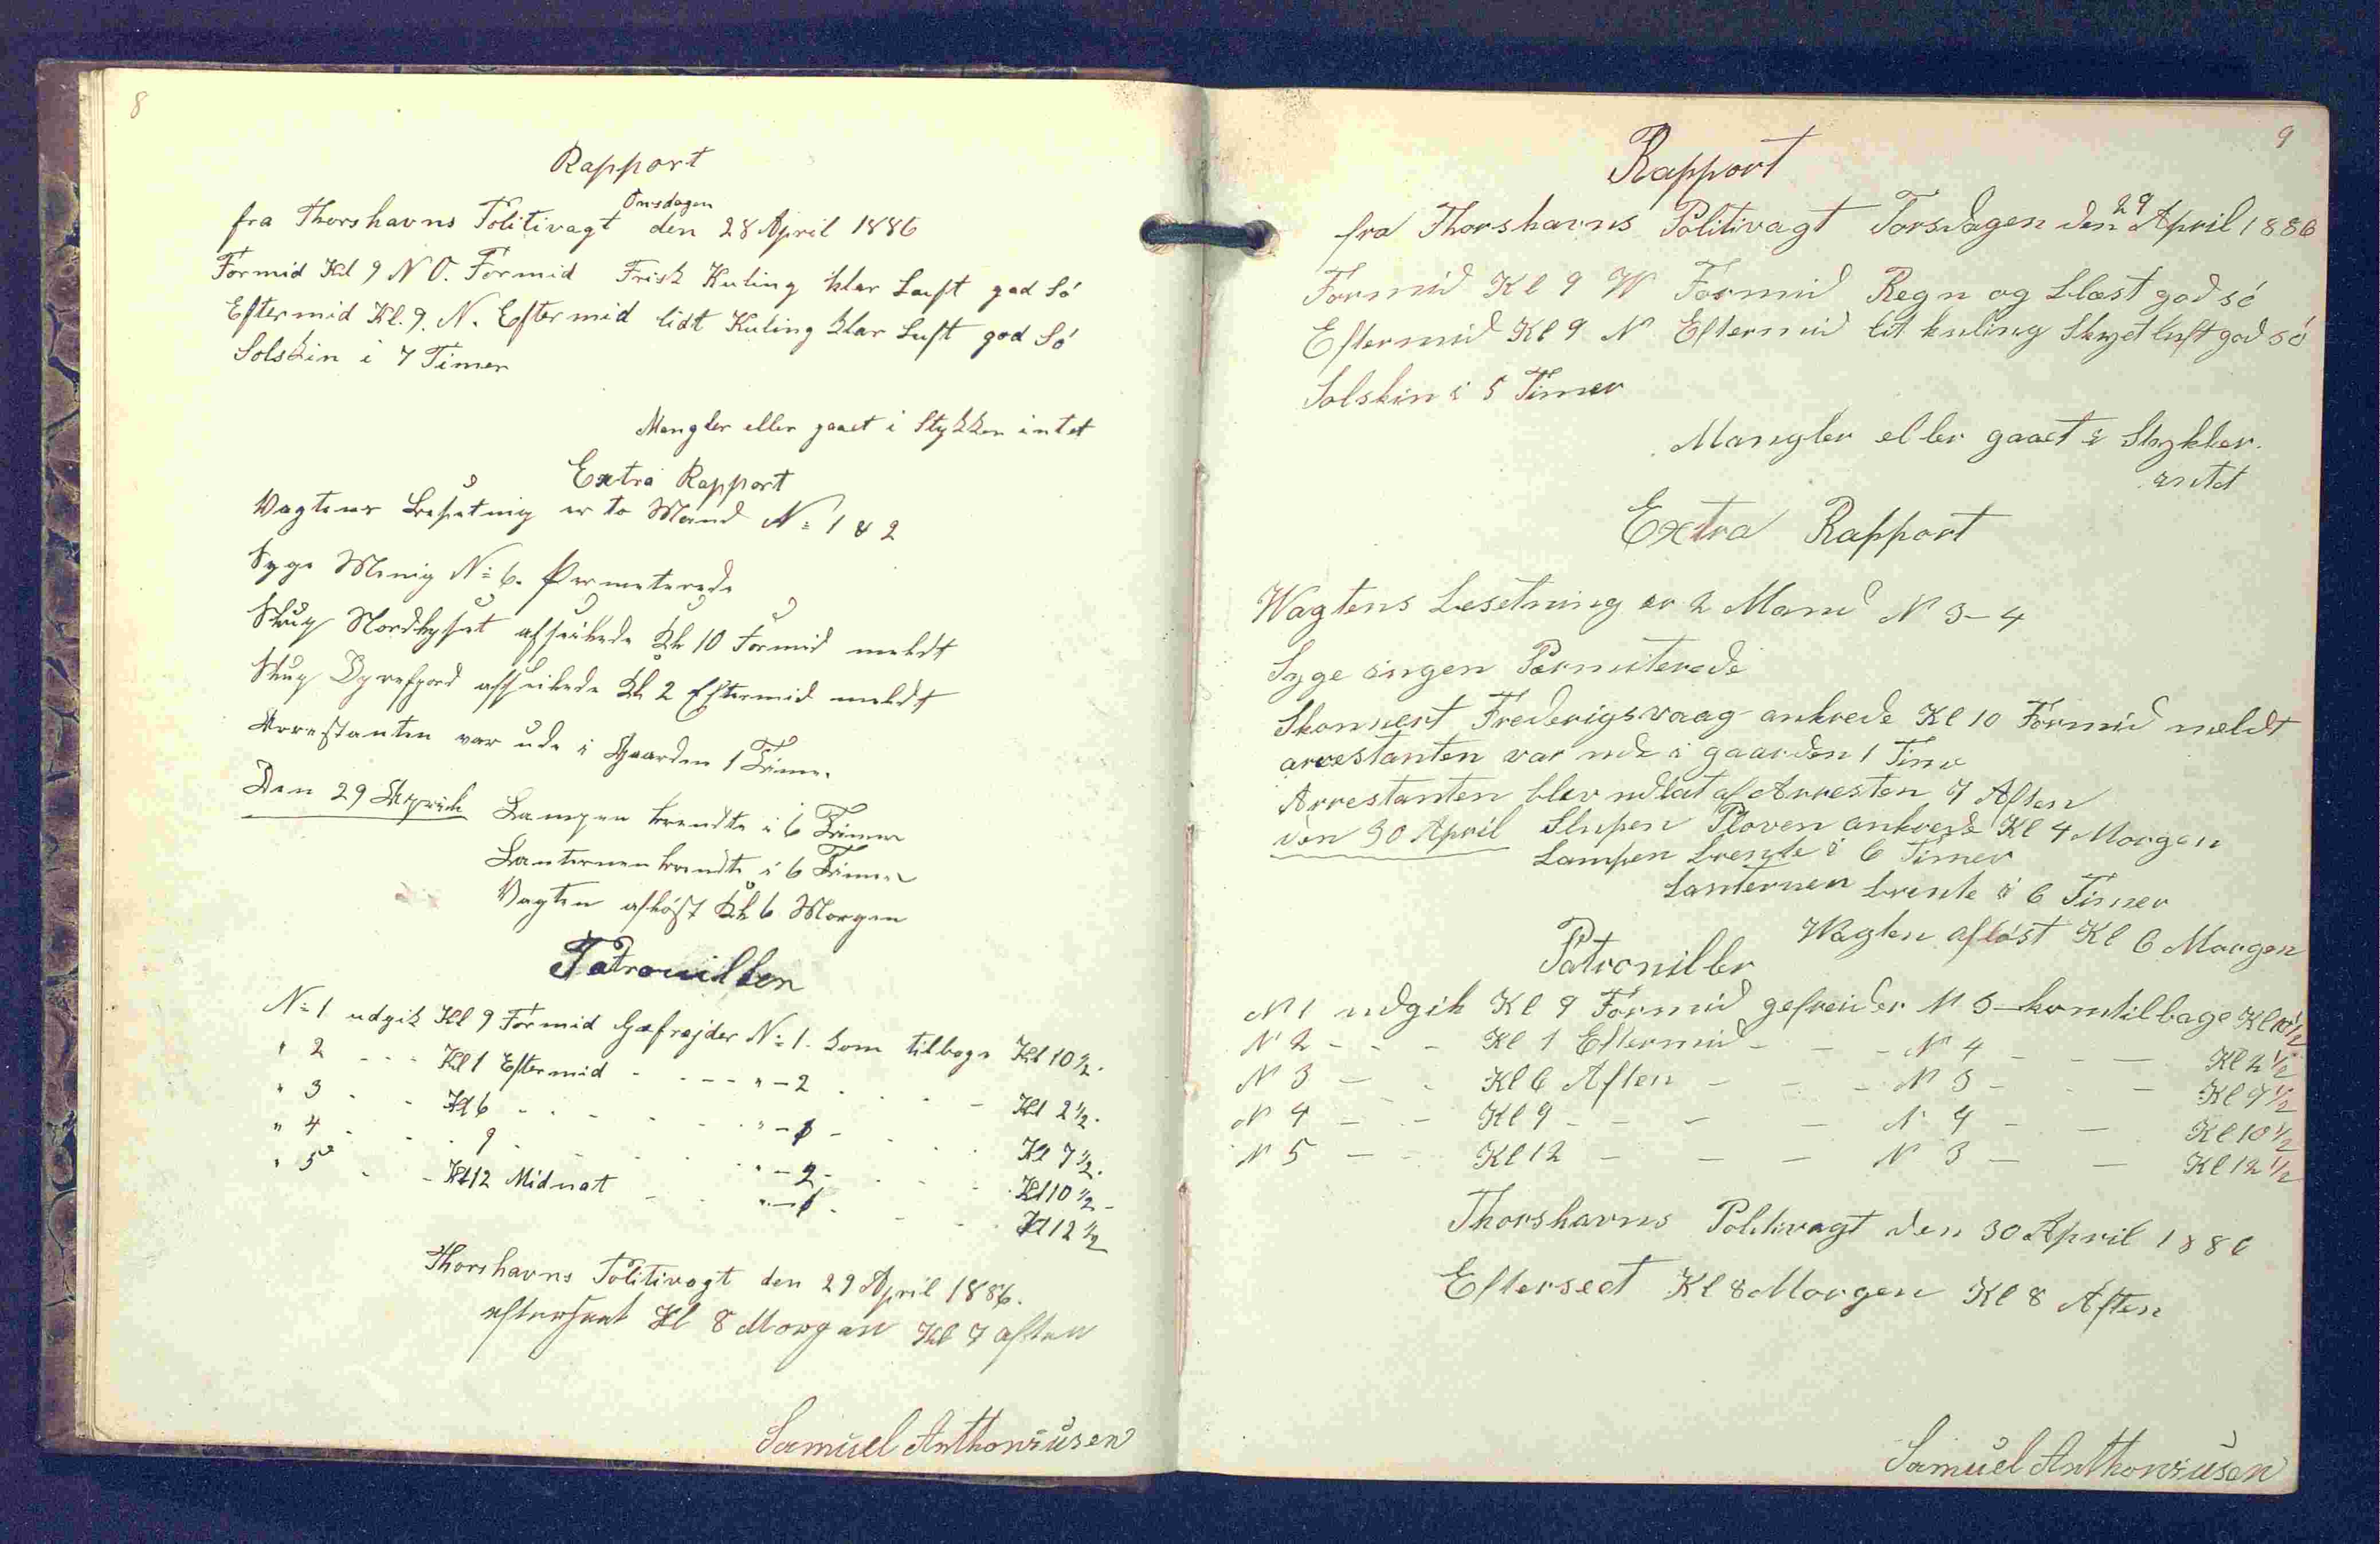 8
Rapport
fra Thorshavns Politivagt Onsdagen den 28 April 1886
Formid Kl 9 N O. Formid Frisk Kuling klar Luft god Sö
Eftermid Kl. 9. N. Eftermid lidt Kuling klar Luft god Sö
Solskin i 7 Timer
Mangler eller gaaet i Stykker intet
Extra Rapport
Vagtens Besetning er to Mand N= 1 & 2
Syge Menig N= 6. Permeterede
Slup Nordlyset afseilede Kl 10 Formid meldt
Slup Dyrefjord afseilede Kl 2 Eftermid meldt
Arrestanten var ude i Gaarden 1 Time.
Den 29 April Lampen brendte i 6 Timer
Lanternen brendte i 6 Timer
Vagten aflöst Kl 6 Morgen
Patrouillen
N= 1 udgik Kl 9 Formid Gefrejder N= 1. kom tilbage Kl 10 ½.
" 2 - - - Kl 1 Eftermid - - - - " - 2 - - - Kl 2 ½.
" 3 - - Kl 6 - - - - " - 1 - - - Kl 7 ½.
" 4 - - - 9 - - - " - 2 - - - Kl 10 ½ -
" 5 - - Kl 12 Midnat - - " - 1 - - - Kl 12 ½
Thorshavns Politivagt den 29 April 1886.
efterseet Kl 8 Morgen Kl 7 aften
Samuel Anthoniusen
9
Rapport
fra Thorshavns Politivagt Torsdagen den 29 April 1886
Formid Kl 9 W Formid Regn og blæst god sö
Eftermid Kl 9 N Eftermid lit kuling Skyet luft god sö
Solskin i 5 Timer
Mangler eller gaaet i Stykker.
intet
Extra Rapport
Wagtens besetning er 2 Mand N 3-4
Syge ingen Permiterede
Skonnert Frederigsvaag ankrede Kl 10 Formid meldt
arrestanten var ude i gaarden 1 Time
Arrestanten blev udlat af Arresten 7 Aften
den 30 April Slupen Ploven ankrede Kl 4 Morgen
Lampen brente i 6 Timer
Lanternen brente i 6 Timer
Wagten aflöst Kl 6 Morgen
Patroniller
N 1 udgik Kl 9 Formid gefreider N 3 - kom tilbage Kl 10 ½
N 2 - - - Kl 1 Eftermid - - - N 4 - - - Kl 2 ½
N 3 - - Kl 6 Aften - - - N 3 - - - Kl 7 ½
N 4 - - - Kl 9 - - - - N 4 - - Kl 10 ½
N 5 - - Kl 12 - - - N 3 - - Kl 12 ½
Thorshavns Politivagt den 30 April 1886
Efterseet Kl 8 Morgen Kl 8 Aften
Samuel Anthoniusen